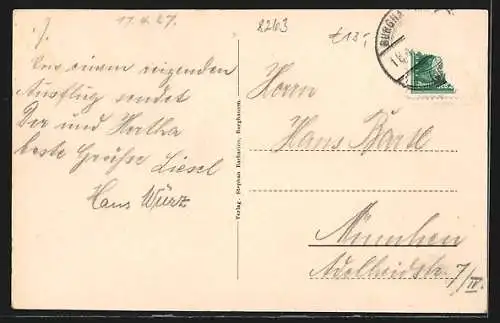 11.4.27.
Von einem reizenden
Ausflug sendet
Dir und Hertha
beste Grüße Liesel
Hans Würz
82103
£13,-
BURGHA
Verlag: Stephan Barbarino, Burghausen.
Herrn
Hans Bartl
München
Adelheidstr. 7/IV.